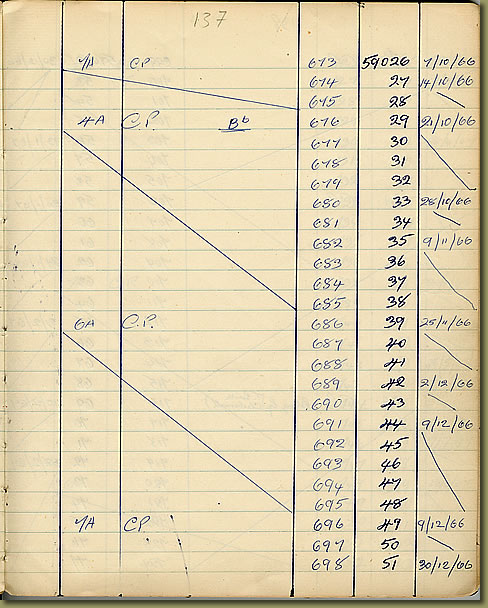 137
7A CP 673 59026 7/10/66
674 27 14/10/66
675 28
4A C.P. Bb 676 29 21/10/66
677 30
678 31
679 32
680 33 28/10/66
681 34
682 35 9/11/66
683 36
684 37
685 38
6A C.P. 686 39 25/11/66
687 40
688 41
689 42 2/12/66
690 43
691 44 9/12/66
692 45
693 46
694 47
695 48
7A CP 696 49 9/12/66
697 50
698 51 30/12/66